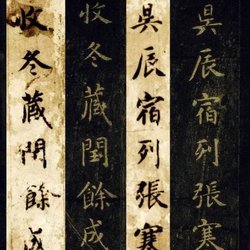 昃辰宿列張寒
昃辰宿列張寒
收冬藏閏餘成
收冬藏閏餘成